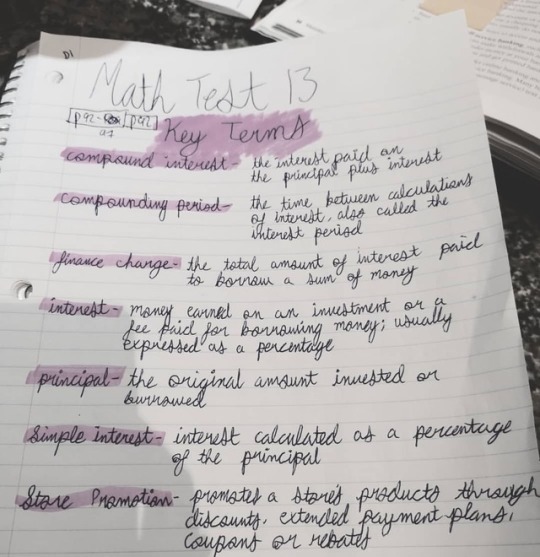 D1
Math Test 13
p92- p212
Key Terms
compound interest- the interest paid on
the principal plus interest
compounding period- the time between calculations
of interest, also called the
interest period
finance charge- the total amount of interest paid
to borrow a sum of money
interest- money earned on an investment or a
fee paid for borrowing money; usually
expressed as a percentage
principal- the original amount invested or
burrowed
simple interest- interest calculated as a percentage
of the principal
Store Promotion- promotes a store's products through
discounts, extended payment plans,
coupons or rebates